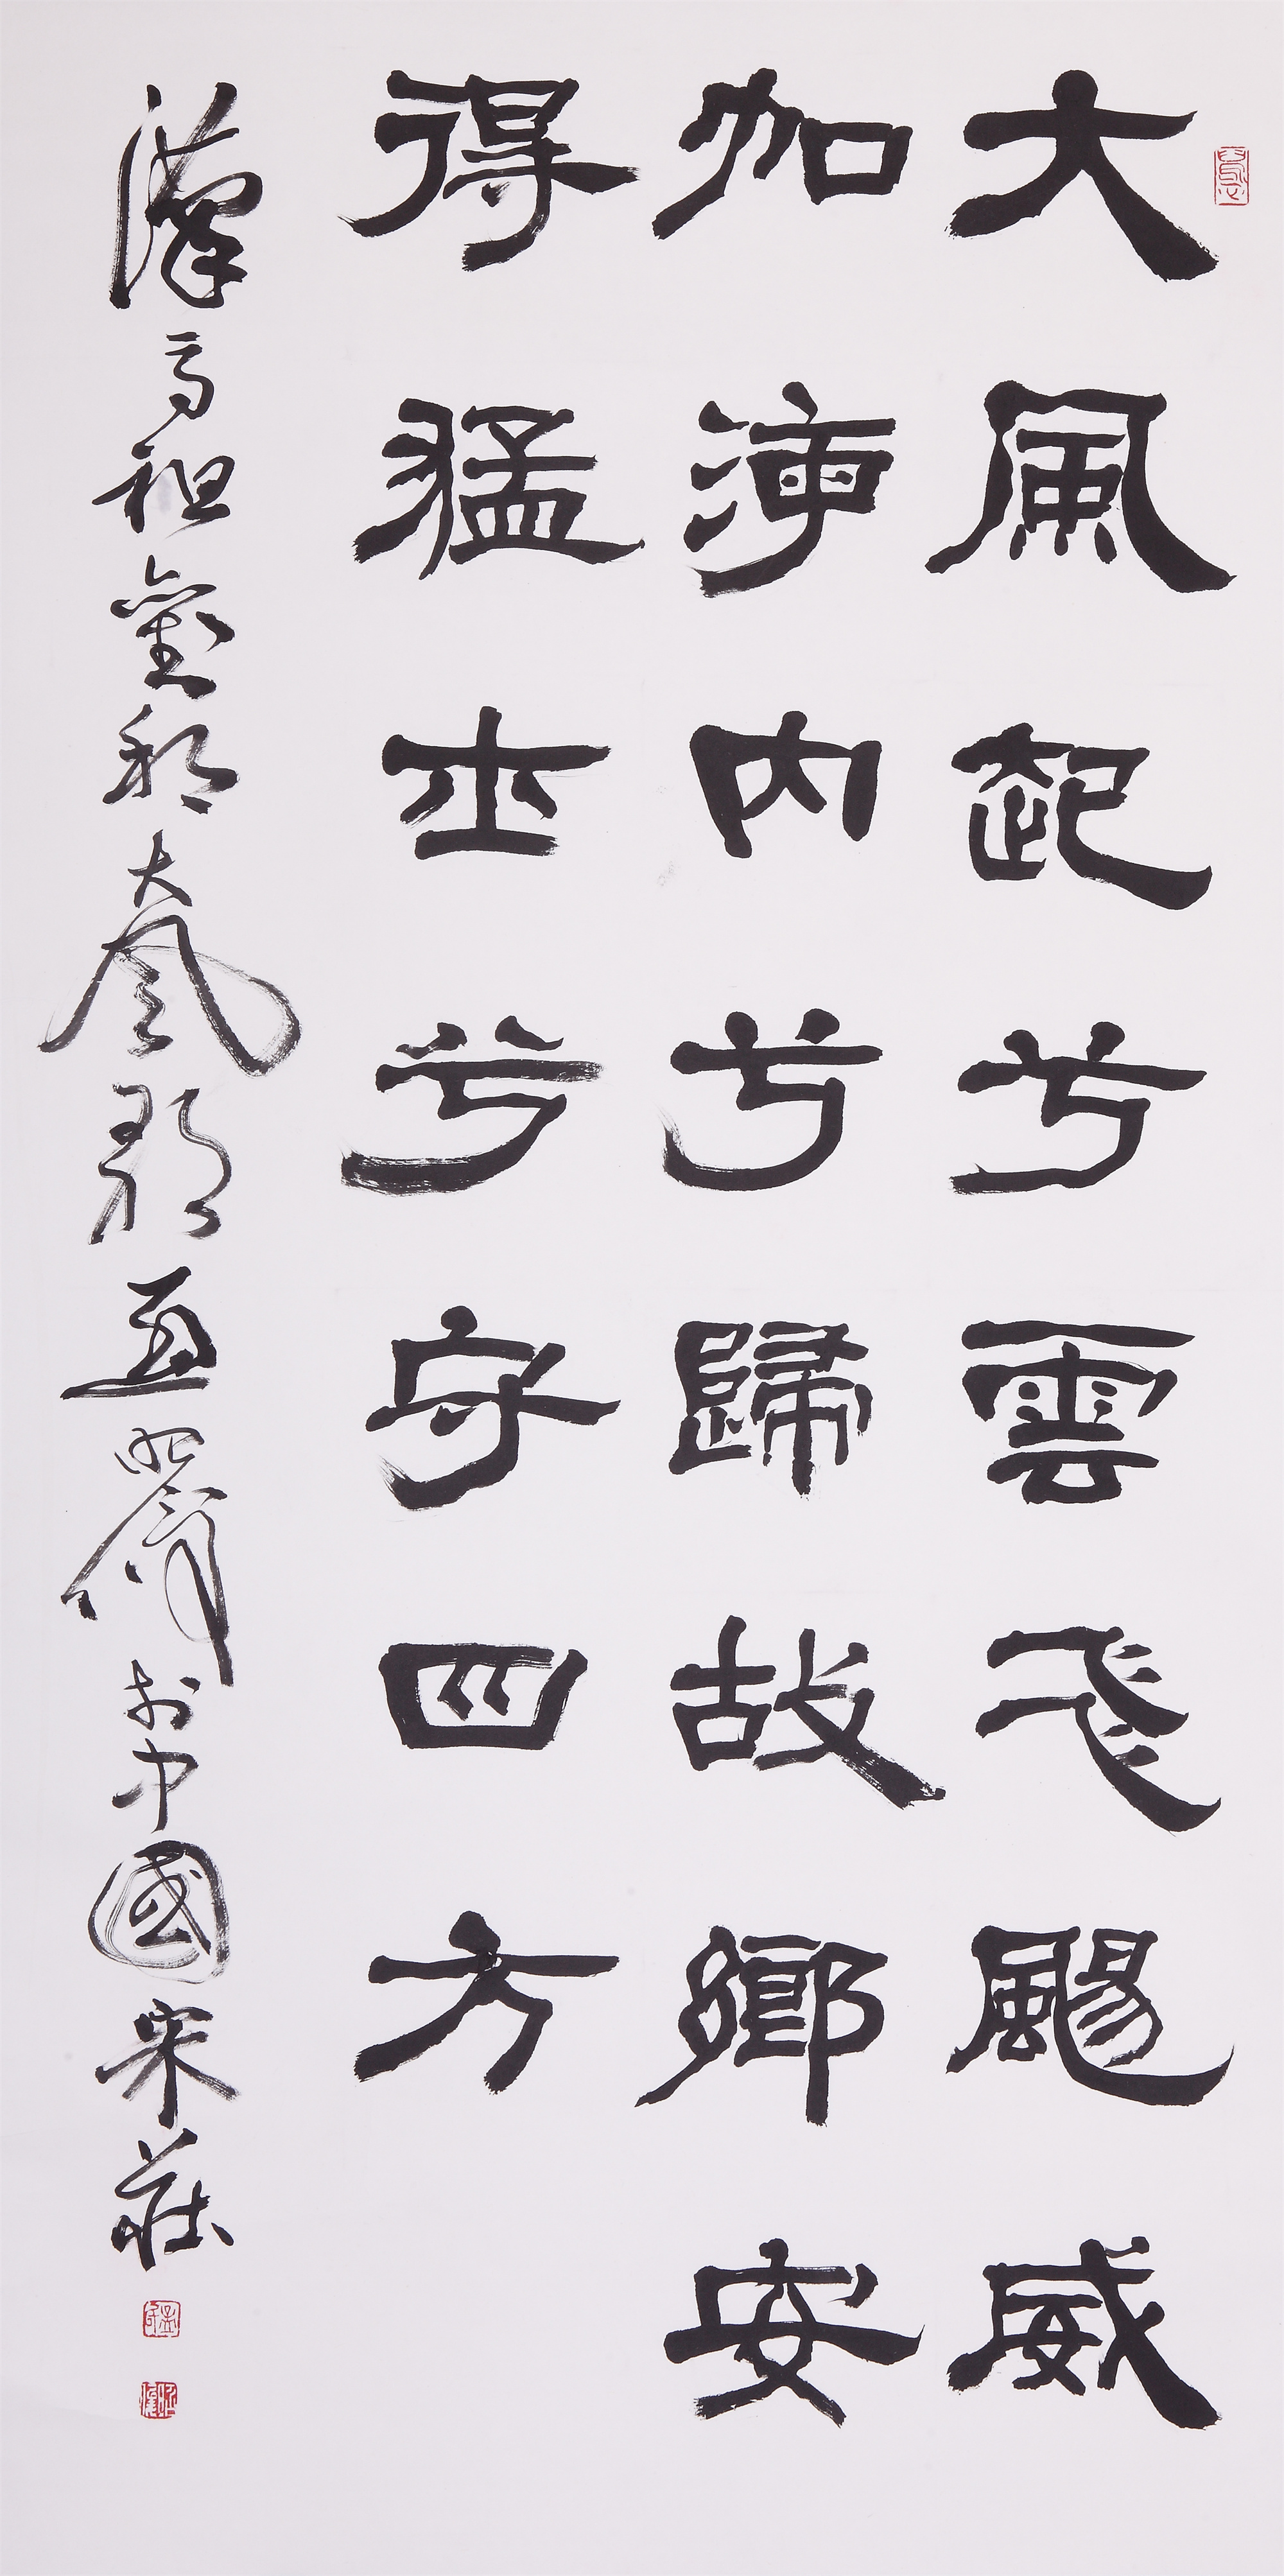 大風起兮雲飛颺威
加海内兮歸故鄉安
得猛士兮守四方
漢高祖劉邦大風歌 孟昭俊於中國宋莊